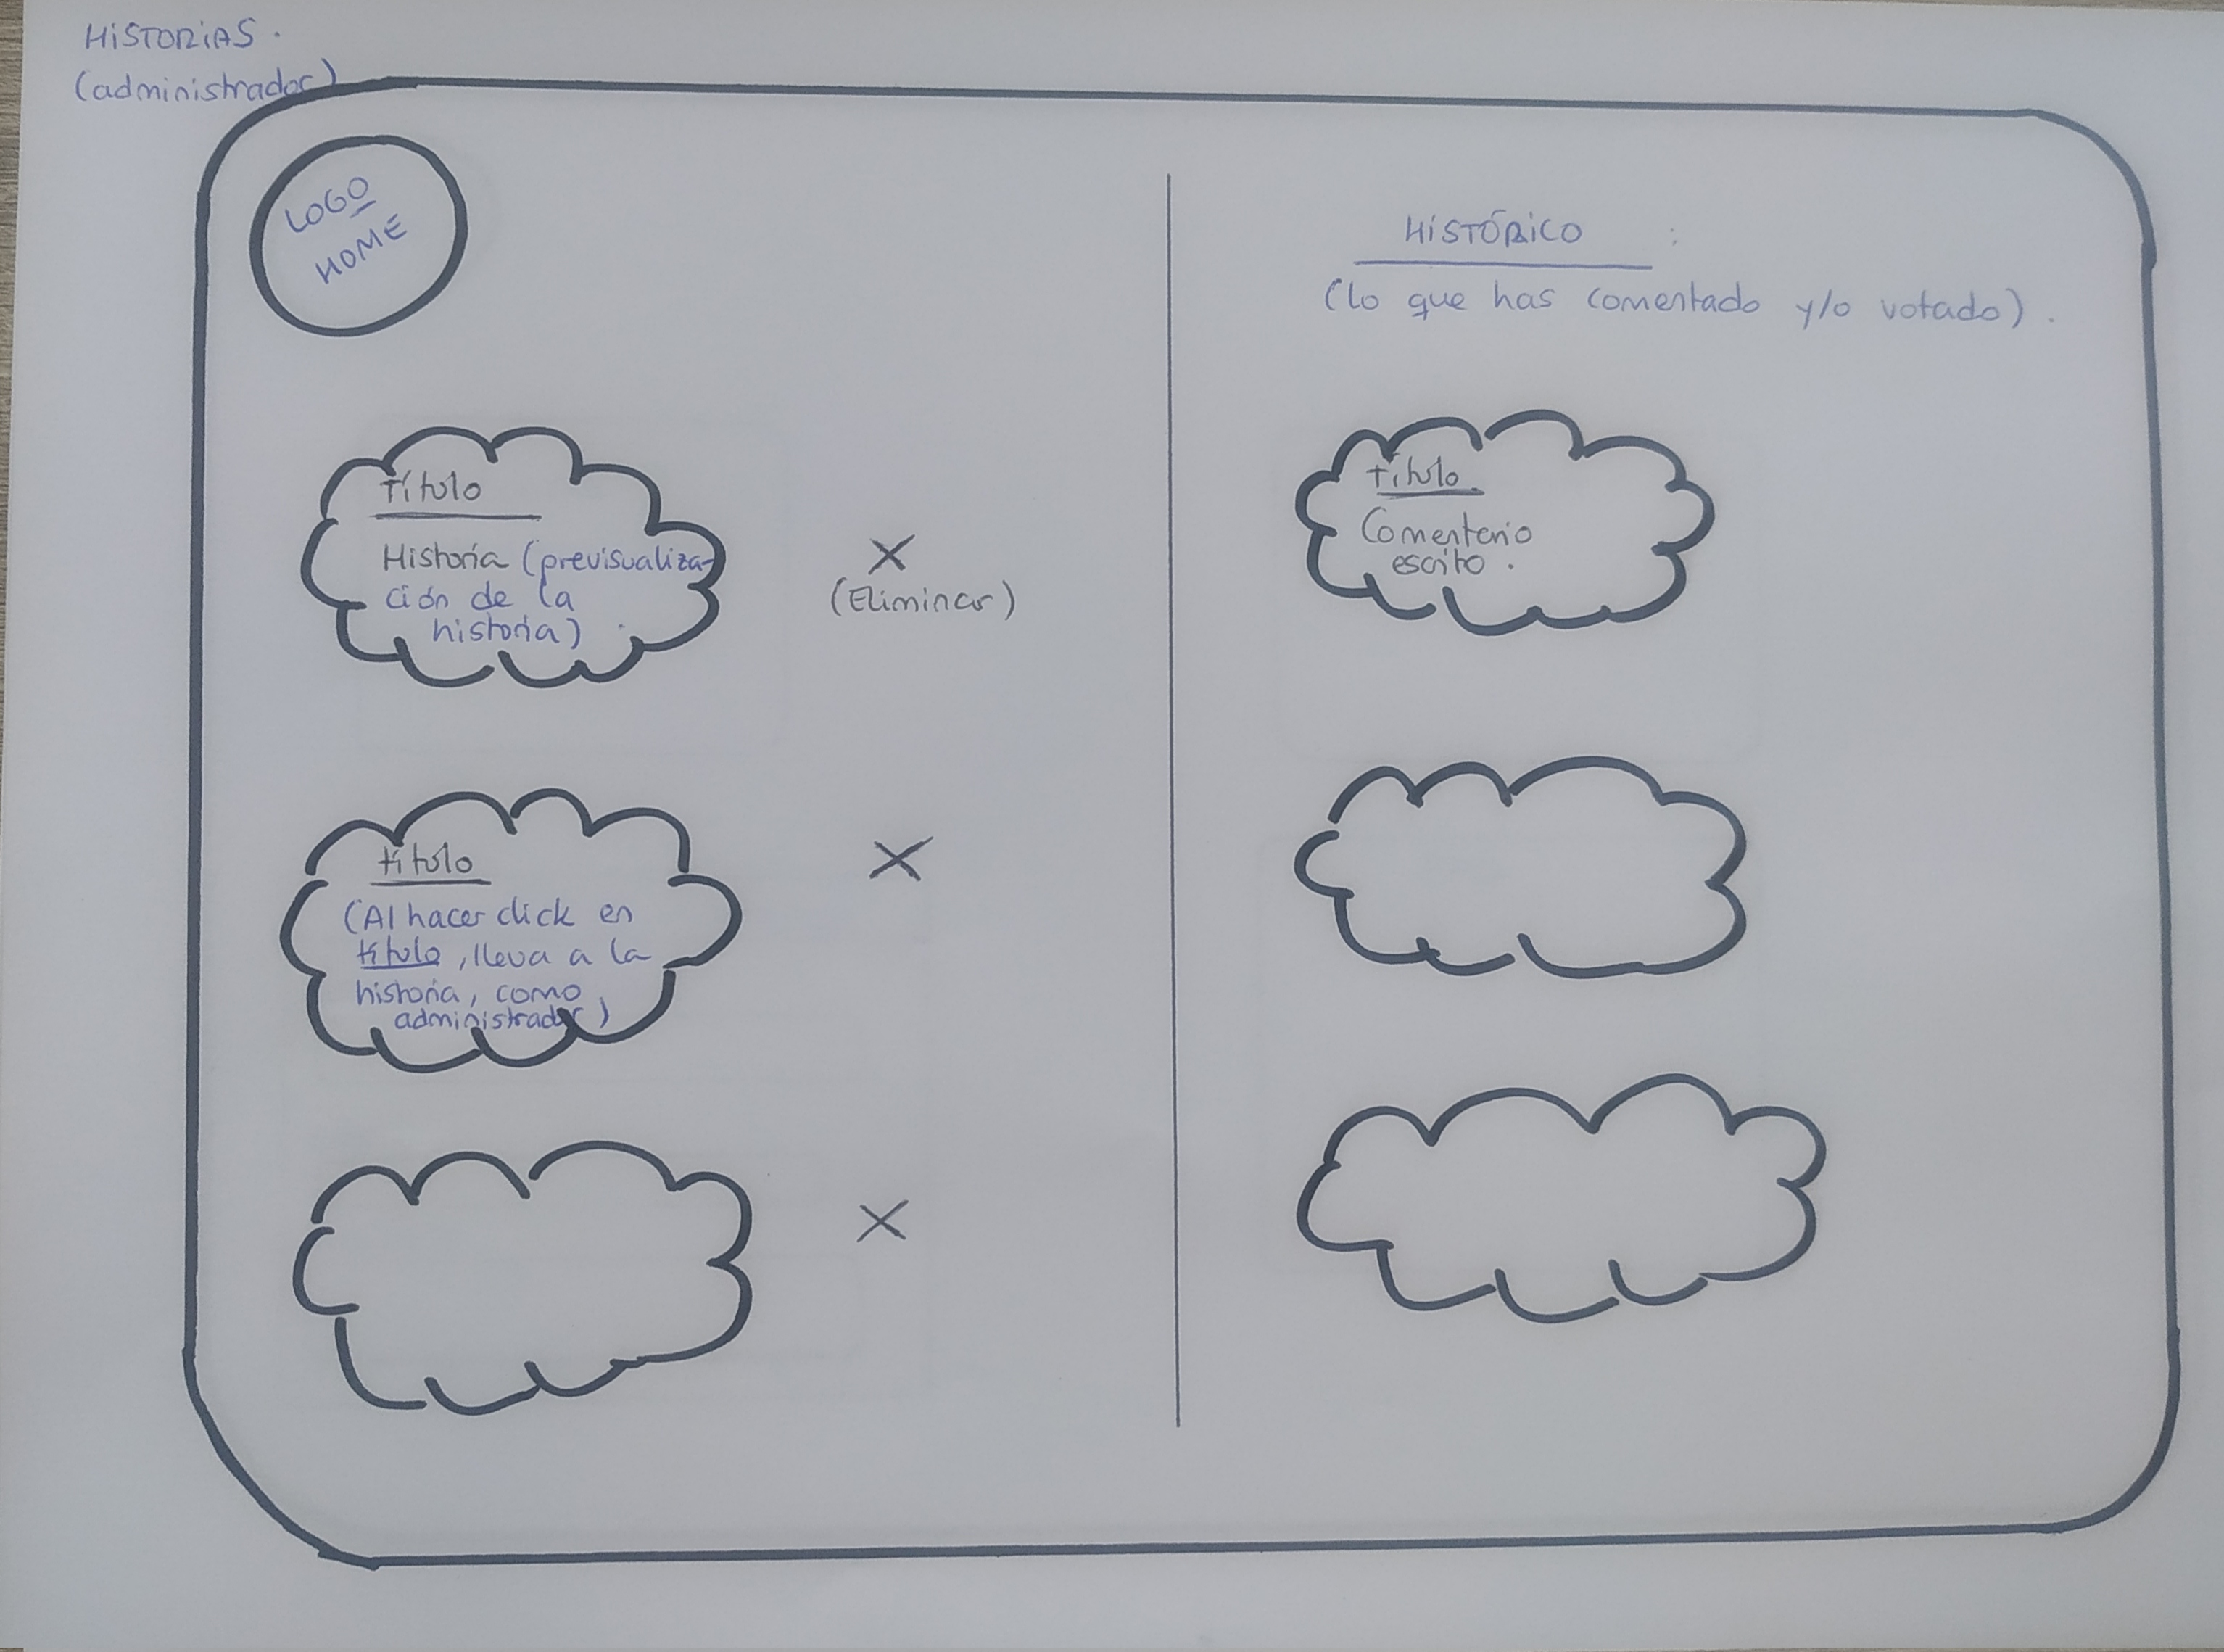 HISTORIAS.
(administrador)
LOGO
HOME
Título
Historia (previsualiza-
ción de la
historia).
X
(Eliminar)
título
(Al hacer click en
título, lleva a la
historia, como
administrador)
X
X
HISTÓRICO :
(lo que has comentado y/o votado).
título
Comentario
escrito.